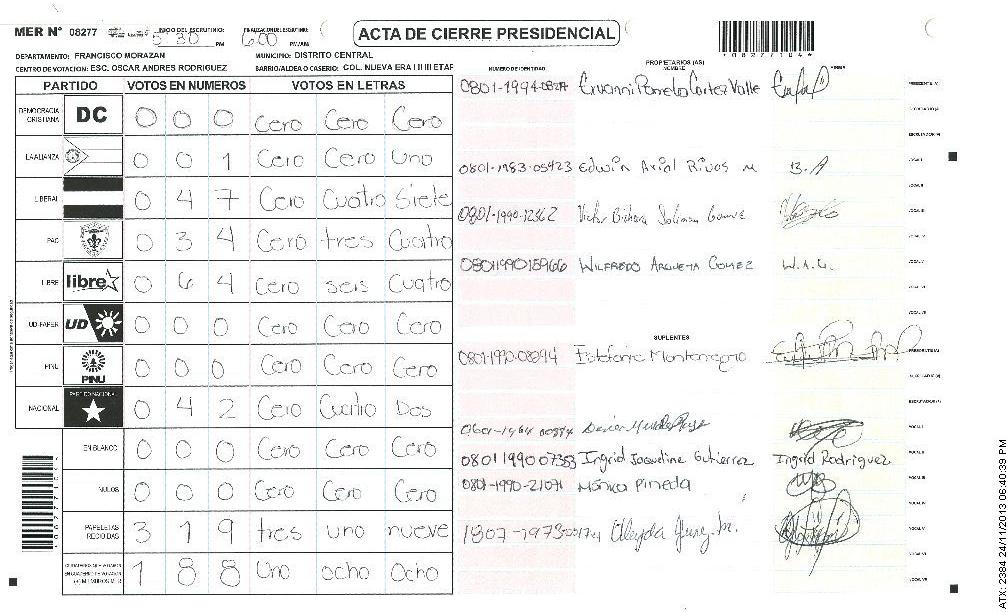 MER N° 08277 INICIO DEL ESCRUTINIO: 5 30 PM FINALIZACION DEL ESCRUTINIO: 6:00 PM/AM
ACTA DE CIERRE PRESIDENCIAL
DEPARTAMENTO: FRANCISCO MORAZAN MUNICIPIO: DISTRITO CENTRAL
CENTRO DE VOTACION: ESC. OSCAR ANDRES RODRIGUEZ BARRIO/ALDEA O CASERIO: COL. NUEVA ERA I II III ETAP
PARTIDO VOTOS EN NUMEROS VOTOS EN LETRAS
DEMOCRACIA CRISTIANA DC 0 0 0 Cero Cero Cero
LA ALIANZA 0 0 1 Cero Cero uno
LIBERAL 0 4 7 Cero Cuatro Siete
PAC 0 3 4 Cero tres Cuatro
LIBRE libre 0 6 4 Cero seis Cuatro
UD-FAPER UD 0 0 0 Cero Cero Cero
PINU PINU 0 0 0 Cero Cero Cero
NACIONAL PARTIDO NACIONAL 0 4 2 Cero Cuatro Dos
EN BLANCO 0 0 0 Cero Cero Cero
NULOS 0 0 0 Cero Cero Cero
PAPELETAS RECIBIDAS 3 1 9 tres uno nueve
1 8 8 Uno ocho Ocho
NUMERO DE IDENTIDAD PROPIETARIOS (AS) NOMBRE FIRMA
0801-1994- Cortez Valle PRESIDENTE (A)
0801-1983-05423 Edwin Arial Rivas M B.A
0801-1990-12362 Victor
0801199015966 WILFREDO ARGUETA GOMEZ W.A.G.
SUPLENTES
0801-1990-08894 Estefania Montenegro
0801199007353 Ingrid Jaqueline Gutierrez Ingrid Rodriguez
0801-1990-21071 Mónica Pineda
1807-1973-
ATX: 2384 24/11/2013 06:40:39 PM